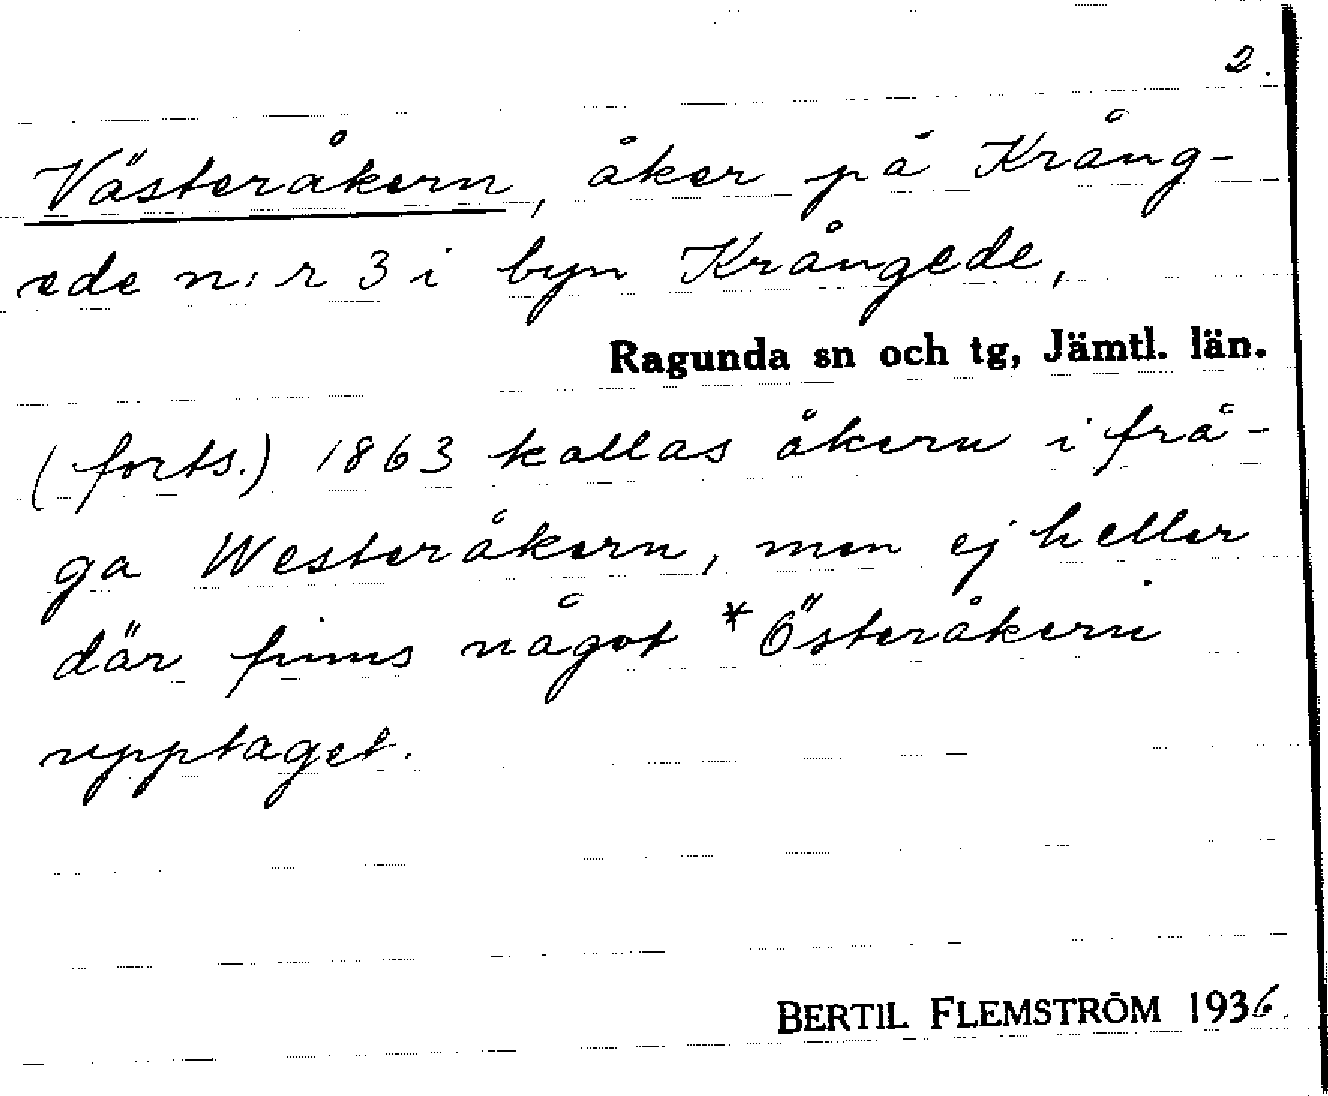 2.
Västeråkern, åker på Krång-
ede n:r 3 i byn Krångede,
Ragunda sn och tg, Jämtl. län.
(forts.) 1863 kallas åkern i frå-
ga Westeråkern, men ej heller
där finns något *Österåkern
upptaget.
BERTIL FLEMSTRÖM 1936